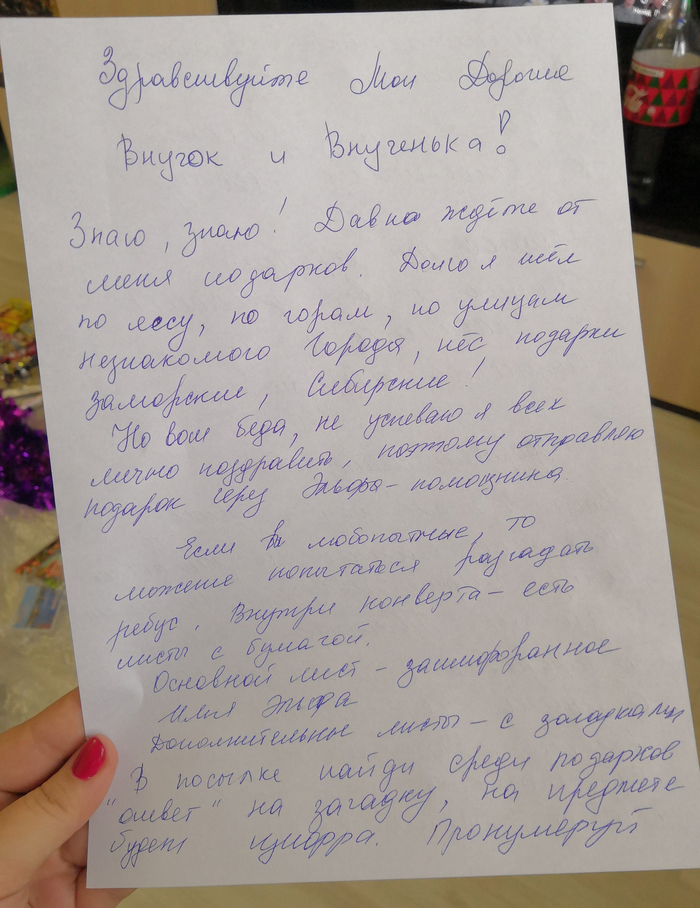 Здравствуйте Мои Дорогие
Внучок и Внученька!
Знаю, знаю! Давно ждёте от
меня подарков. Долго я шёл
по лесу, по горам, по улицам
незнакомого Города, нёс подарки
заморские, Сибирские!
Но вот беда, не успеваю я всех
лично поздравить, поэтому отправляю
подарок через Эльфа-помощника.
Если вы любопытные, то
можете попытаться разгадать
ребус. Внутри конверта - есть
листы с бумагой.
Основной лист - зашифрованное
Имя Эльфа
Дополнительные листы - с загадками
"В посылке найди среди подарков
"ответ" на загадку, на предмете
будет цифра. Пронумеруй